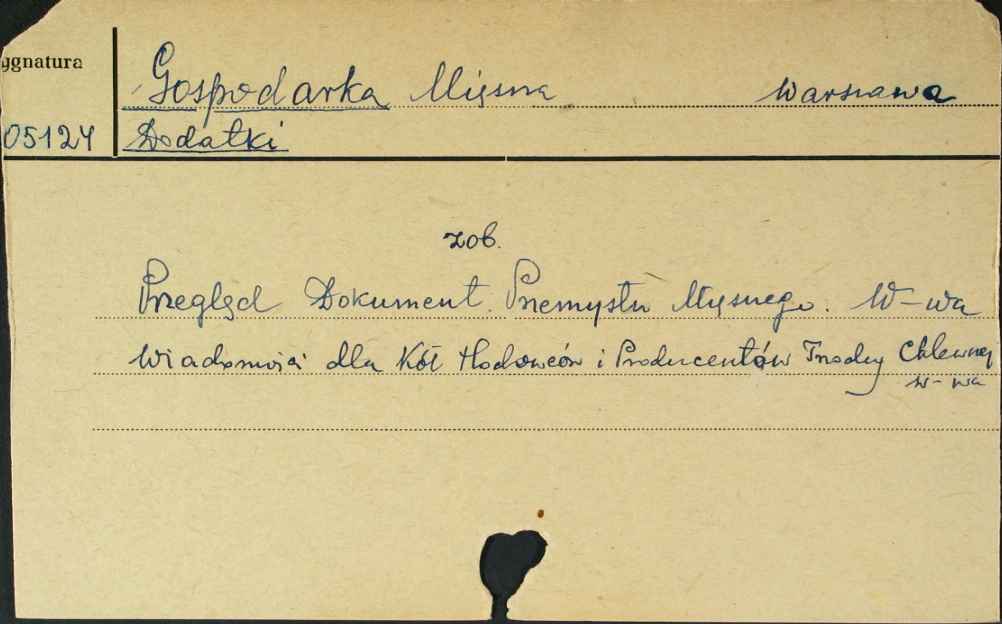 ygnatura
Gospodarka Mięsna Warszawa
05124 Dodatki
zob.
Przegląd Dokument. Przemysłu Mięsnego. W-wa
Wiadomości dla Kół Hodowców i Producentów Trzody Chlewnej
W-wa